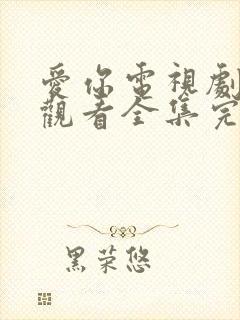 愛你電視劇
觀看全集完
黑荣悠